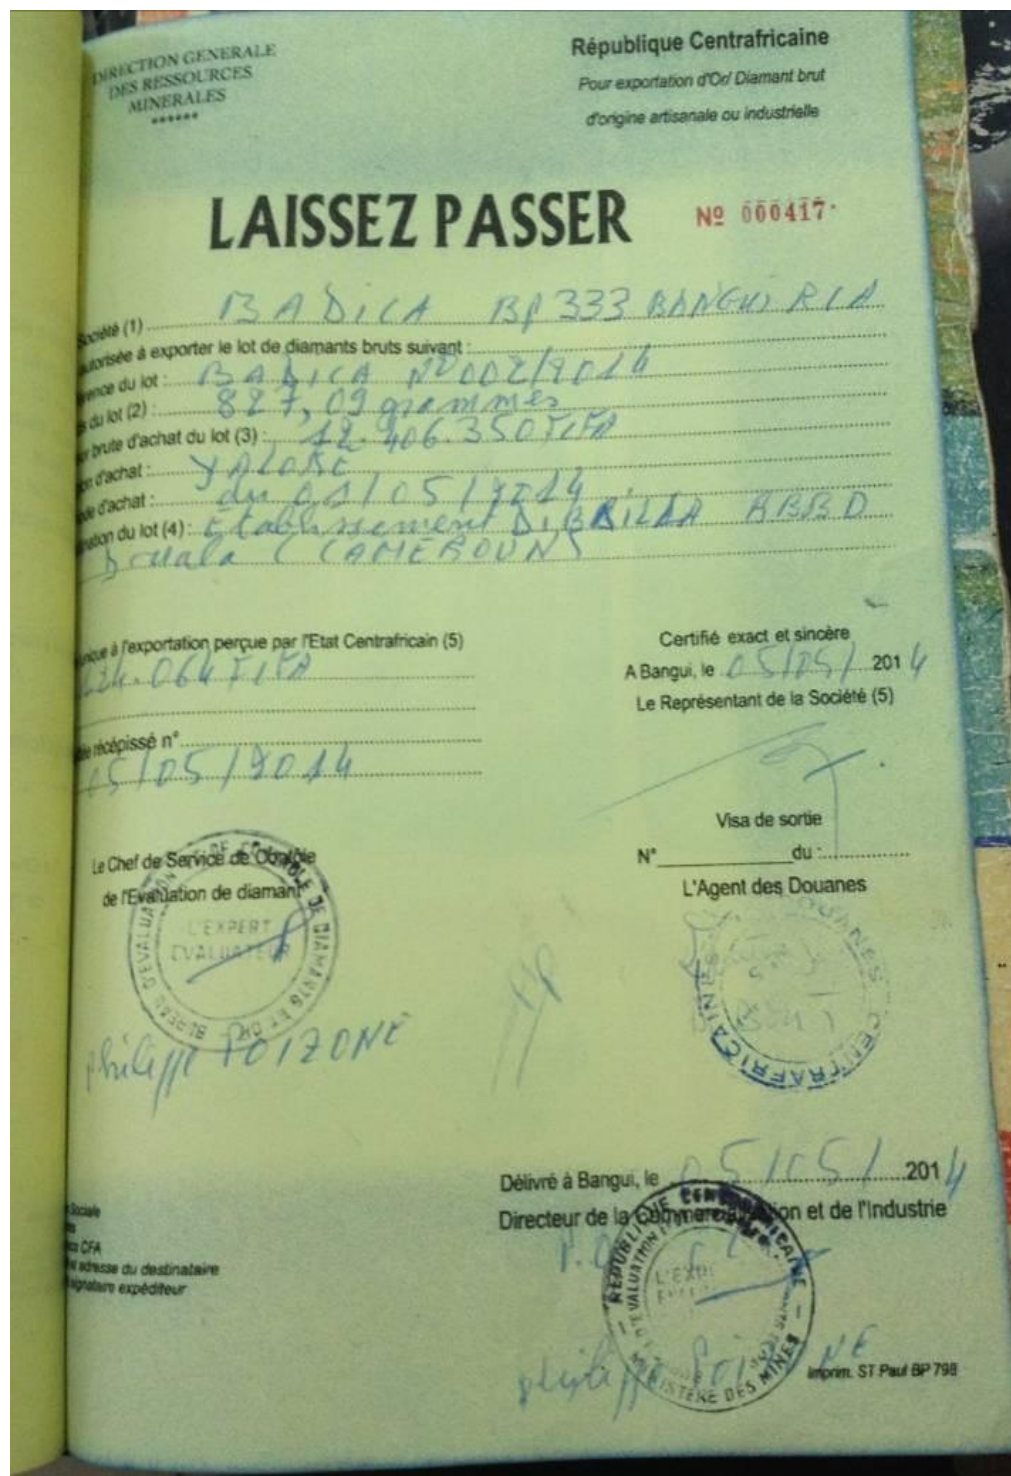 DIRECTION GENERALE
DES RESSOURCES
MINERALES
******
République Centrafricaine
Pour exportation d'Or/ Diamant brut
d'origine artisanale ou industrielle
LAISSEZ PASSER
Nº 000417
Société (1) BADICA BP 333 BANGUI RCA
autorisée à exporter le lot de diamants bruts suivant :
rence du lot : BADICA Nº 002/2014
du lot (2) : 827,09 grammes
brute d'achat du lot (3) : 12.406.350 FCFA
d'achat : YALOKE
d'achat : du 01/05/2014
nation du lot (4) : Etablissement
Douala (CAMEROUN)
unique à l'exportation perçue par l'Etat Centrafricain (5)
.064 FCFA
récépissé n°
05/05/2014
Certifié exact et sincère
A Bangui, le 05/05/ 2014
Le Représentant de la Société (5)
Visa de sortie
N° du :
L'Agent des Douanes
DOUANES CENTRAFRICAINES
Le Chef de Service de Contrôle
de l'Evaluation de diamant
BUREAU D'EVALUATION DE CONTROLE DE DIAMANTS ET OR
L'EXPERT
EVALUATEUR
Philippe POIZONE
Délivré à Bangui, le 05/05/ 2014
Directeur de la Commercialisation et de l'Industrie
REPUBLIQUE CENTRAFRICAINE
MINISTERE DES MINES
Sociale
CFA
adresse du destinataire
signataire expéditeur
Imprim. ST Paul BP 798